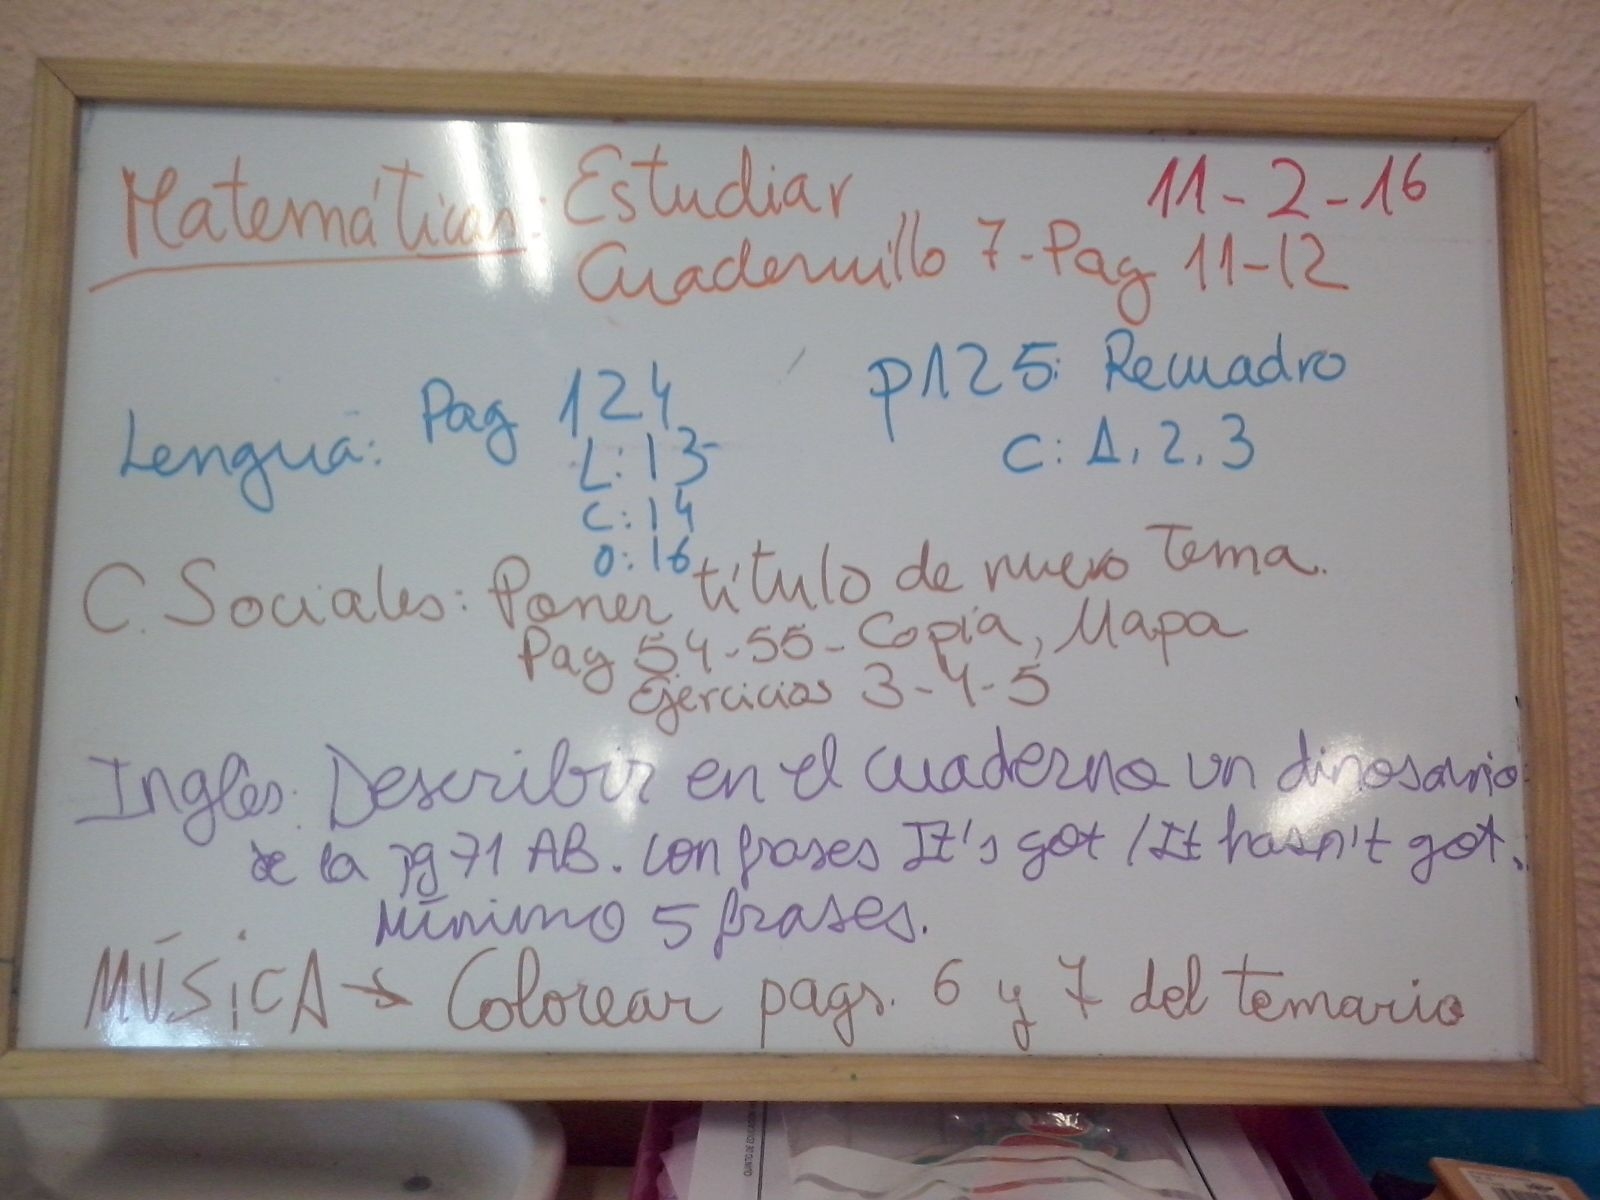 Matemáticas: Estudiar
11-2-16
Cuadernillo 7-Pag 11-12
Lengua: Pag 124
L: 13
C: 14
O: 16
p125: Recuadro
C: 1, 2, 3
C. Sociales: Poner título de nuevo Tema.
Pag 54-55- Copia, Mapa
Ejercicios 3-4-5
Inglés: Describir en el cuaderno un dinosaurio
de la pg 71 AB. Con frases It's got / It hasn't got.
Mínimo 5 frases.
MÚSICA → Colorear pags. 6 y 7 del temario